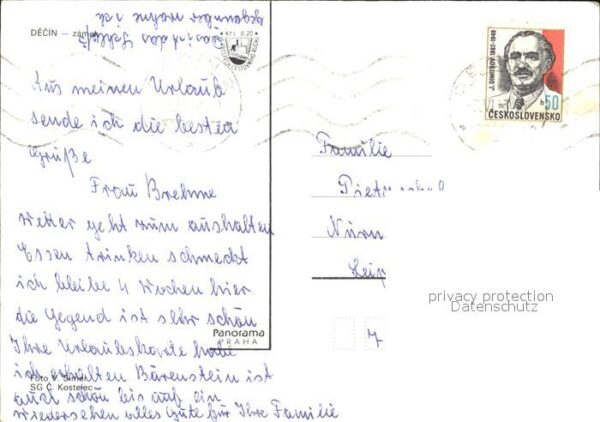 DĚČÍN — zámek
das ist das Schloß
gegenüber wohne ich
Kčs 0,20
J. DIMITROV 1882-1949
50 h
ČESKOSLOVENSKO
Aus meinen Urlaub
sende ich die besten
Grüße
Frau Brehme
Wetter geht zum aushalten
Essen trinken schmeckt
ich bleibe 4 Wochen hier
die Gegend ist sehr schön
Ihre Urlaubskarte habe
ich erhalten Bärenstein ist
auch schön bis auf ein
wiedersehen alles Gute für Ihre Familie
Familie
Piet
Nürn
Leip
privacy protection
Datenschutz
7
Panorama
PRAHA
Foto V. Šimek
SG Č. Kostelec